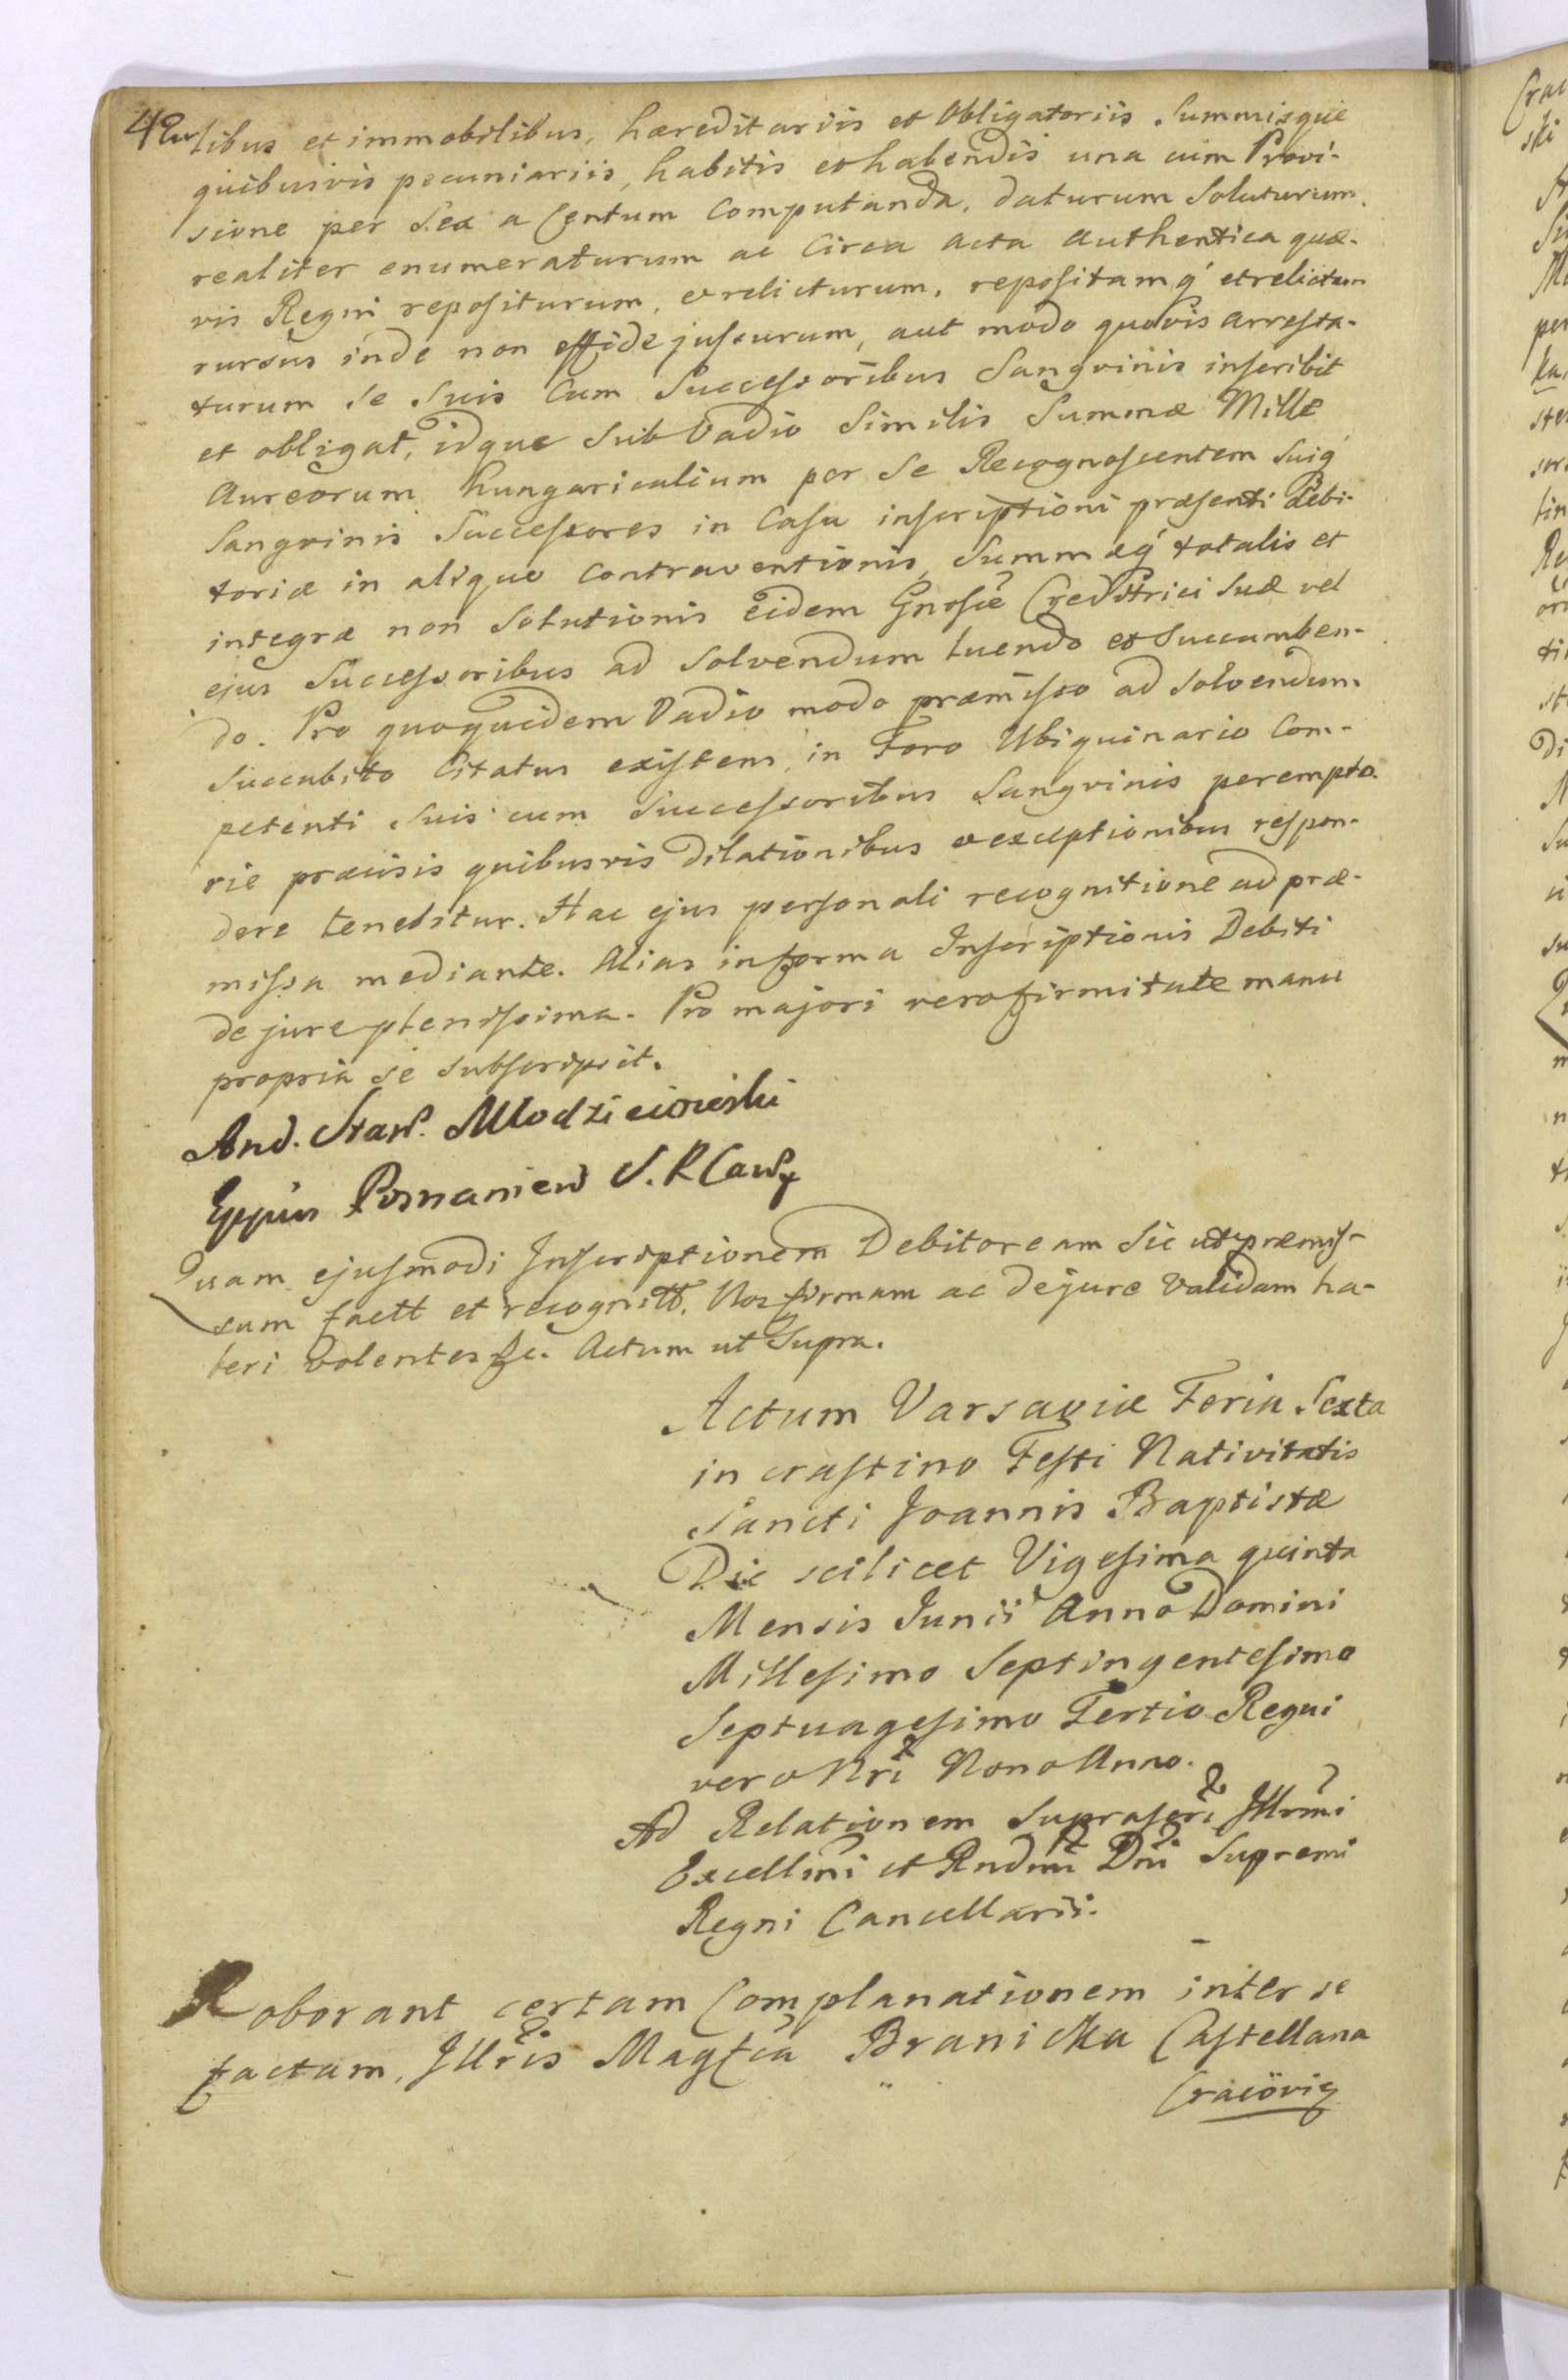 42v
libus et immobilibus, hæreditariis et Obligatoriis Summisque
quibusvis pecuniariis, habitis et habendis una cum Provi-
sione per Sex a Centum Computanda, daturum Soluturum,
realiter enumeraturum ac Circa acta authentica quæ-
vis Regni repositurum, et relicturum, repositamq́ et relictam
rursus inde non effide jussurum, aut modo quovis arresta-
turum se Suis Cum Successoribus Sangvinis inscribit
et obligat, idque Sub Vadio Similis Summæ Mille
Aureorum hungaricalium per Se Recognoscentem Suiq́
Sangvinis Successores in Casu inscriptioni præsenti Debi-
toriæ in aliquo Contraventionis, Summæq́ totalis et
integræ non Solutionis Eidem Gnosæ Creditrici Suæ vel
ejus Successoribus ad Solvendum luendo et Succumben-
do. Pro quoquidem Vadio modo præmisso ad Solvendum
Succubito Citatus existens, in Foro Ubiquinario Com-
petenti Suis cum Successoribus Sangvinis perempto-
rie præcisis quibusvis Dilationibus et exceptionibus respon-
dere tenebitur. Hac ejus personali recognitione ad præ-
missa mediante. Alias in forma Inscriptionis Debiti
de jure plenissima. Pro majori vero firmitate manu
propria se Subscripsit.
And. Stan. Młodzieiowski
Eppus Posnanien S. R Canc
Quam ejusmodi Inscriptionem Debitoream Sic ut præmis-
sum factt et recognitt. Nos firmam ac de jure Validam ha-
beri Volentes &c. Actum ut Supra.
Actum Varsaviæ Feria Sexta
in crastino Festi Nativitatis
Sancti Joannis Baptistæ
Die scilicet Vigesima quinta
Mensis Junii Anno Domini
Millesimo Septingentesimo
Septuagesimo Tertio Regni
vero Nri Nono Anno.
Ad Relationem Suprascri Illrmi
Excellmi et Rndmi Dni Supremi
Regni Cancellarii.
Roborant certam Complanationem inter se
factam, Illris Magfca Branicka Castellana
Cracoviæ